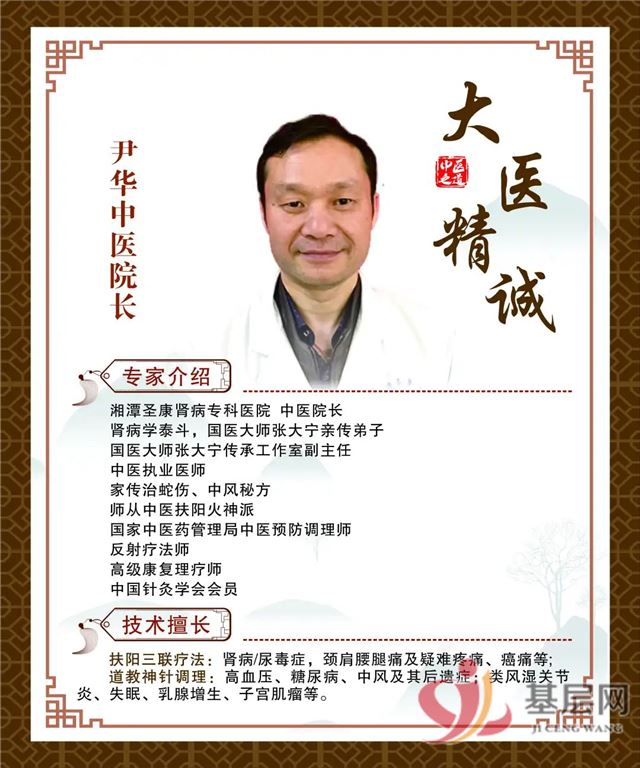 大医精诚
中医之道
尹华中医院长
专家介绍
湘潭圣康肾病专科医院 中医院长
肾病学泰斗，国医大师张大宁亲传弟子
国医大师张大宁传承工作室副主任
中医执业医师
家传治蛇伤、中风秘方
师从中医扶阳火神派
国家中医药管理局中医预防调理师
反射疗法师
高级康复理疗师
中国针灸学会会员
技术擅长
扶阳三联疗法：肾病/尿毒症，颈肩腰腿痛及疑难疼痛、癌痛等;
道教神针调理：高血压、糖尿病、中风及其后遗症；类风湿关节
炎、失眠、乳腺增生、子宫肌瘤等。
基层网
JI CENG WANG